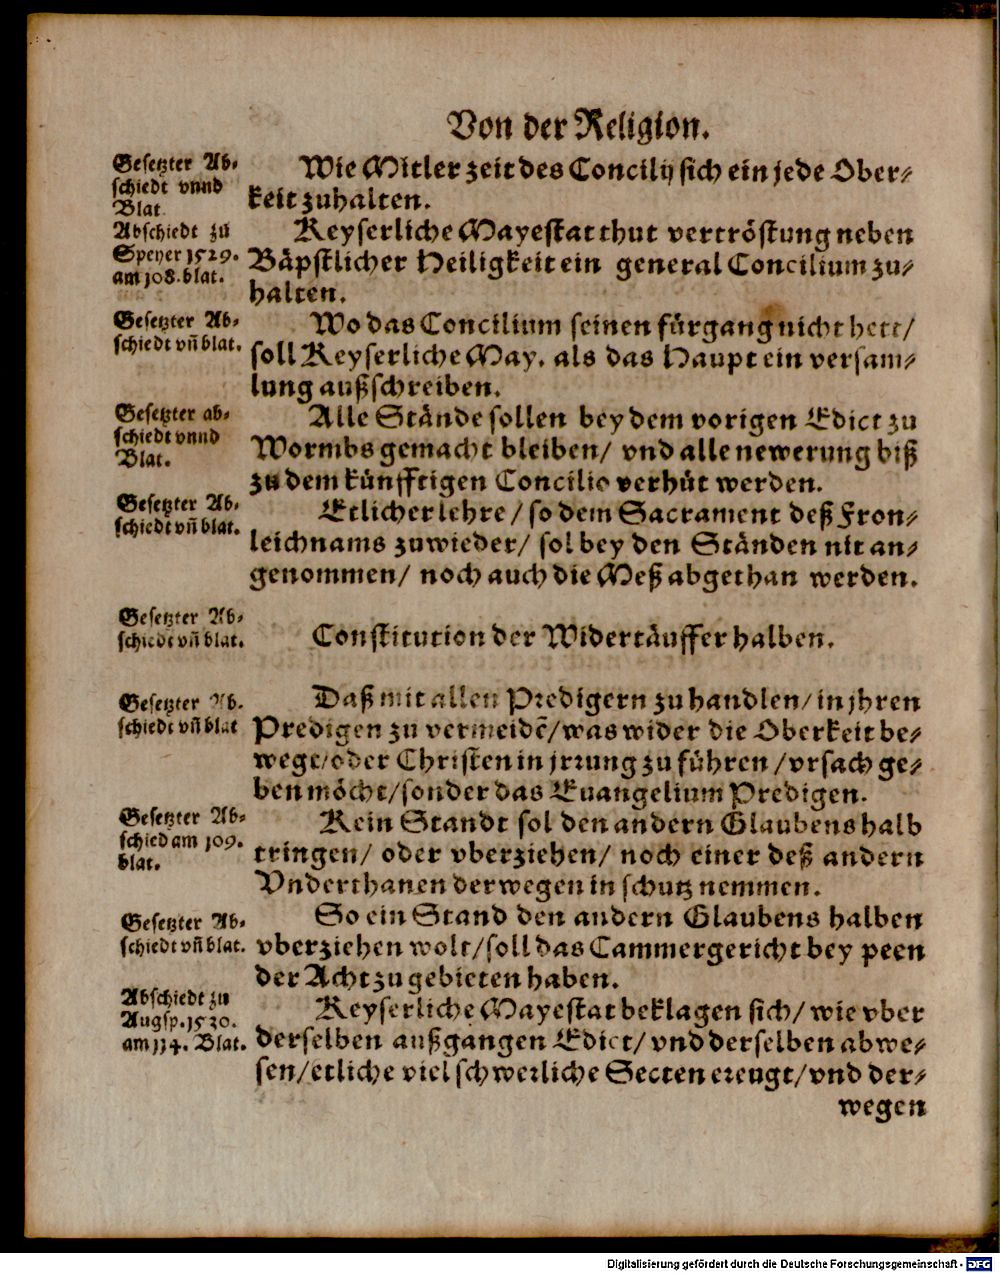 Von der Religion.
Gesetzter Ab-
schiedt vnnd
Blat
Wie Mitler zeit des Concilij sich ein jede Ober-
keit zuhalten.
Abschiedt zů
Speyer 1529.
am 108. blat.
Keyserliche Mayestat thut vertröstung neben
Bäpstlicher Heiligkeit ein general Concilium zu-
halten.
Gesetzter Ab-
schiedt vñ blat.
Wo das Concilium seinen fürgang nicht hett/
soll Keyserliche May. als das Haupt ein versam-
lung außschreiben.
Gesetzter ab-
schiedt vnnd
Blat.
Alle Stände sollen bey dem vorigen Edict zu
Wormbs gemacht bleiben/ vnd alle newerung biß
zu dem künfftigen Concilio verhüt werden.
Gesetzter Ab-
schiedt vñ blat.
Etlicher lehre/ so dem Sacrament deß Fron-
leichnams zuwieder/ sol bey den Ständen nit an-
genommen/ noch auch die Meß abgethan werden.
Gesetzter Ab-
schiedt vñ blat.
Constitution der Widertäuffer halben.
Gesetzter Ab.
schiedt vñ blat
Daß mit allen Predigern zu handlen/ in jhren
Predigen zu vermeidẽ/ was wider die Oberkeit be-
wege/ oder Christen in jrrung zu führen/ vrsach ge-
ben möcht/ sonder das Euangelium Predigen.
Gesetzter Ab-
schied am 109.
blat.
Kein Standt sol den andern Glaubens halb
tringen/ oder vberziehen/ noch einer deß andern
Vnderthanen derwegen in schutz nemmen.
Gesetzter Ab-
schiedt vñ blat.
So ein Stand den andern Glaubens halben
vberziehen wolt/ soll das Cammergericht bey peen
der Acht zu gebieten haben.
Abschiedt zu
Augsp. 1530.
am 114. Blat.
Keyserliche Mayestat beklagen sich/ wie vber
derselben außgangen Edict/ vnd derselben abwe-
sen/ etliche viel schwerliche Secten ereugt/ vnd der-
wegen
Digitalisierung gefördert durch die Deutsche Forschungsgemeinschaft - DFG